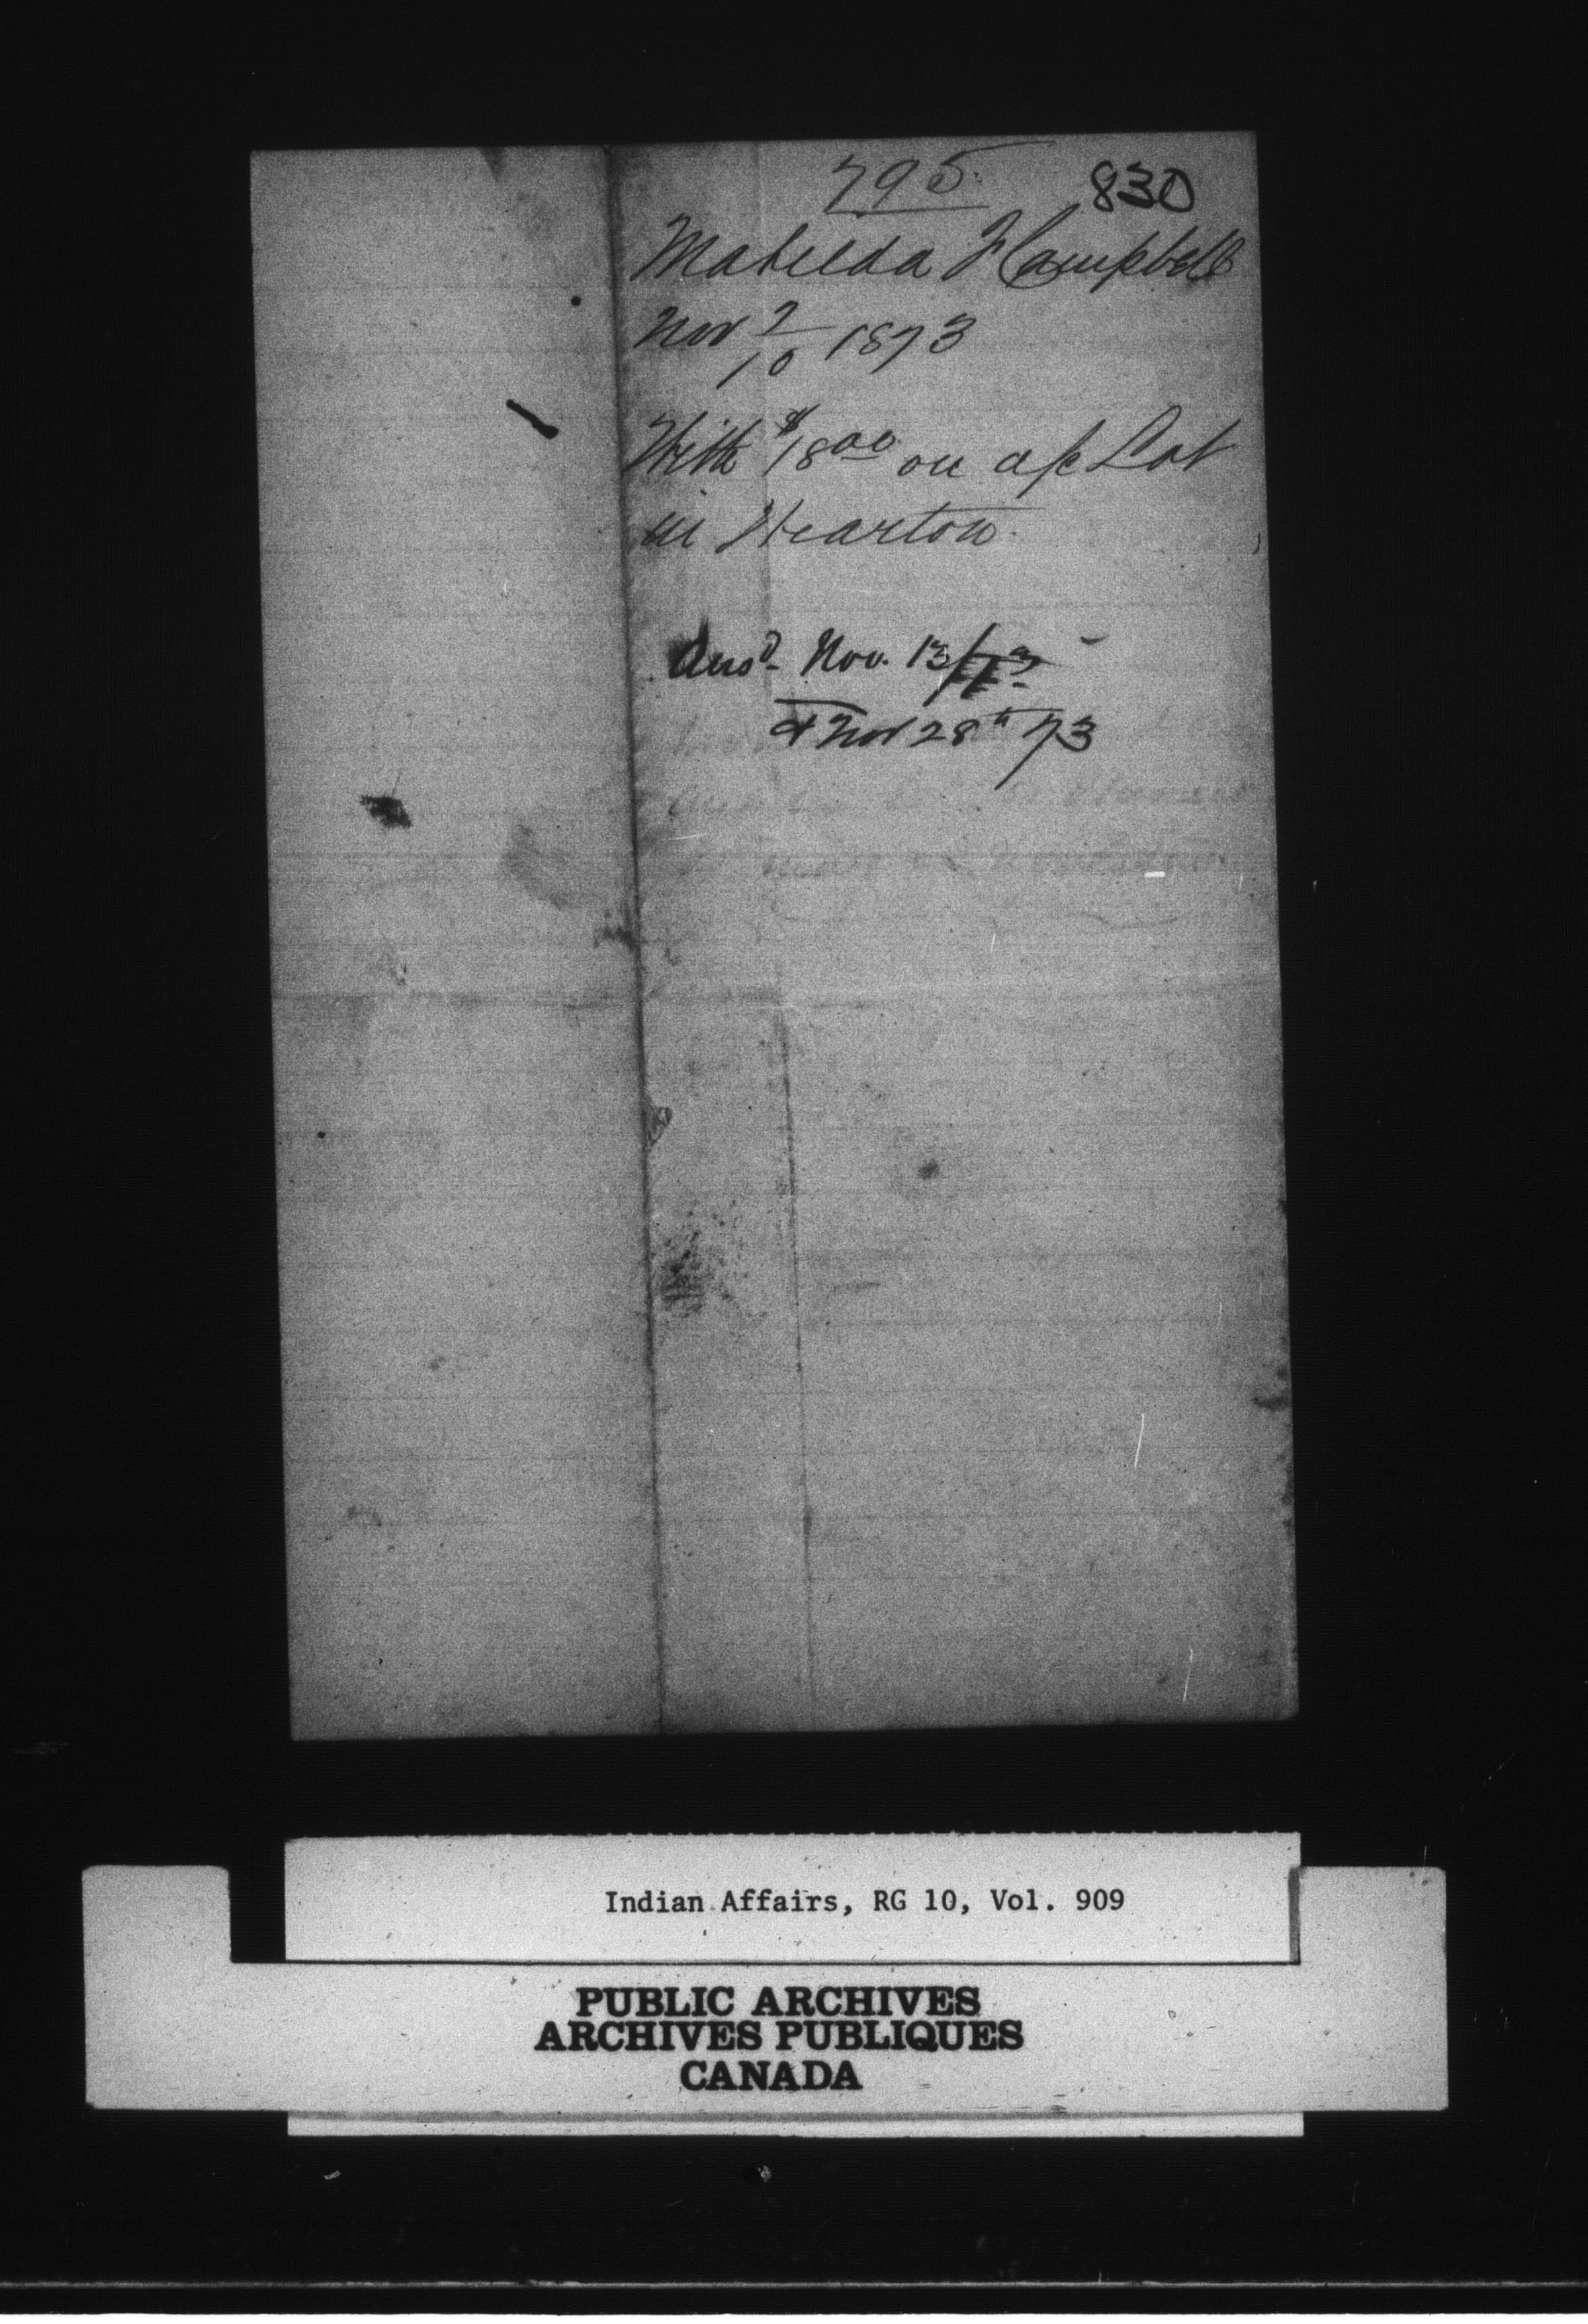 795.
830
Matilda F Campbell
Nov 7/10 1873
With $18.00 on a/c Lot
in Wiarton.
Ansd. Nov. 13/73
& Nov 28th 73
Indian Affairs, RG 10, Vol. 909
PUBLIC ARCHIVES
ARCHIVES PUBLIQUES
CANADA